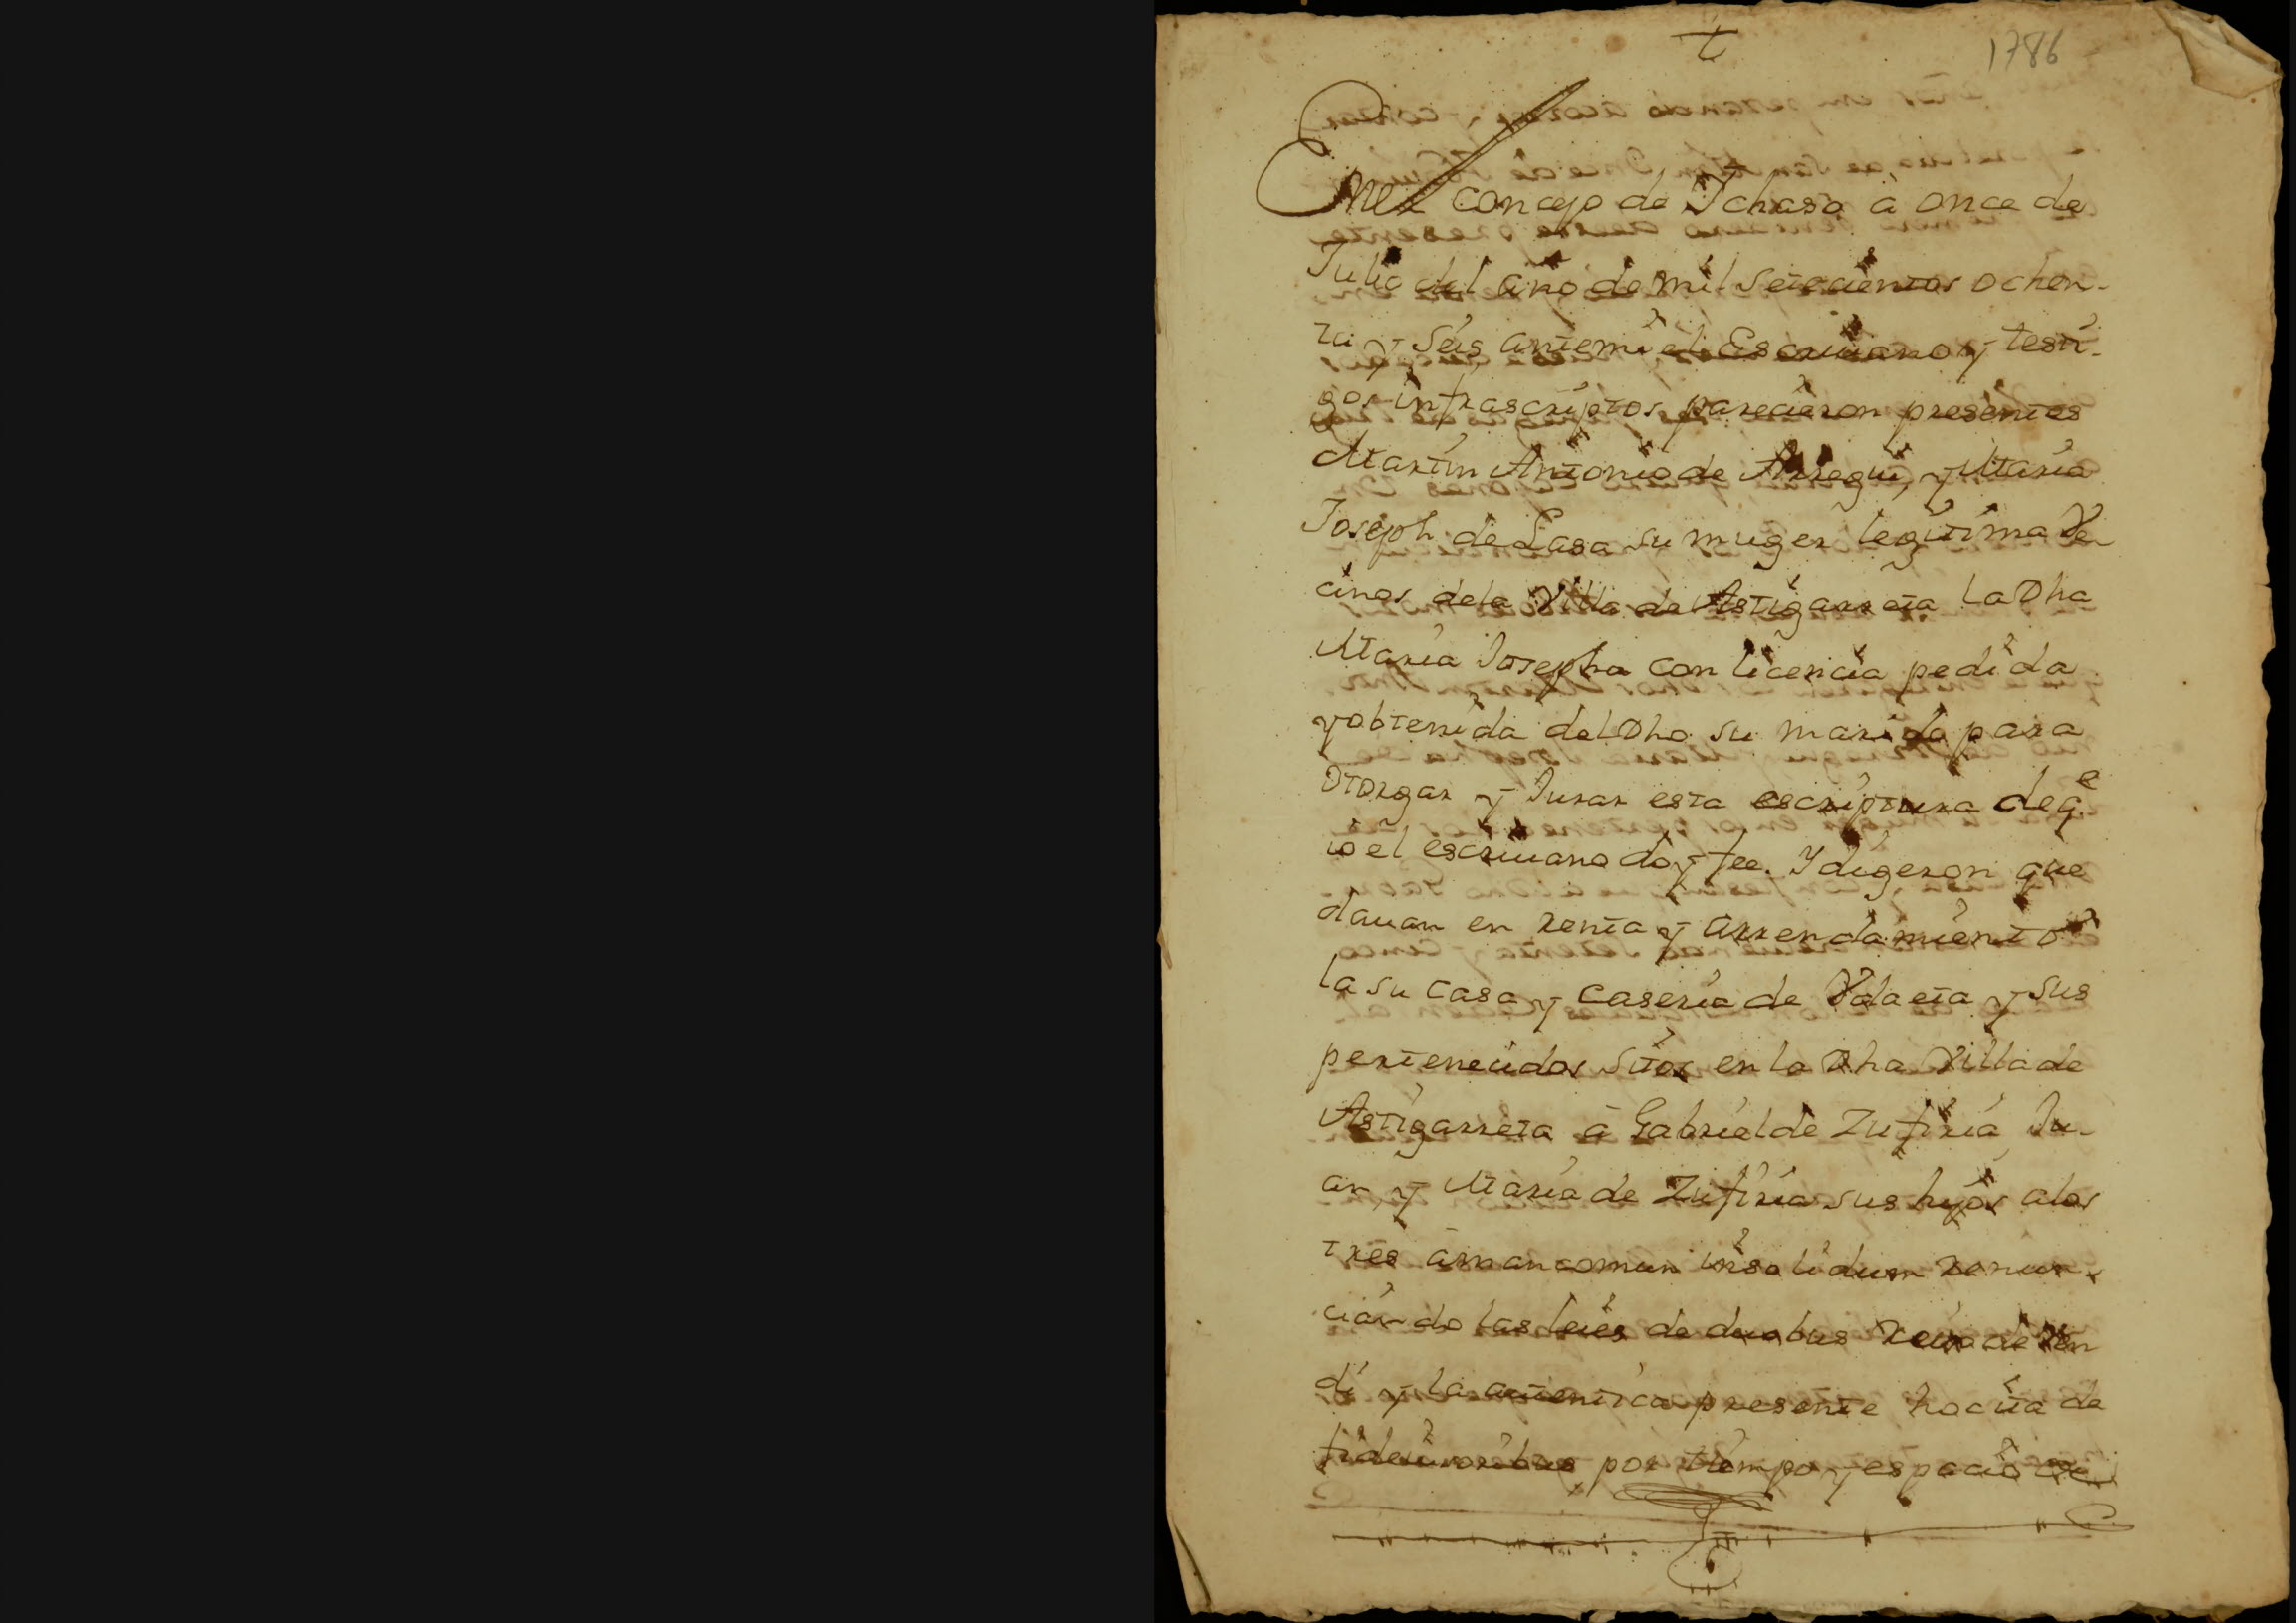 1786
En el Concejo de Ichaso á once de
Julio del año de mil Setecientos ochen-
ta y Séis antemi el Escriuano y testi-
gos infrascriptos parecieron presentes
Martin Antonio de Arregui, y Maria
Joseph de Lasa su muger legitima Ve-
cinos dela Villa de Astigarreta la Dha
Maria Josepha con licencia pedida
y obtenida del Dho su marido para
otorgar y Jurar esta escriptura de q.e
io el escriuano doy fee. Y digeron que
dauan en renta y arrendamiento
la su casa y caseria de Ydaeta y sus
pertenecidos Sitos en la Dha Villa de
Astigarreta á Gabriel de Zufiria, Ju-
an, y Maria de Zufiria sus hijos alos
tres àmancomun insolidum renun-
ciando las leies de duobus reux de ven
di y la autentica presente hocita de
fideiusoribus por tiempo y espacio de